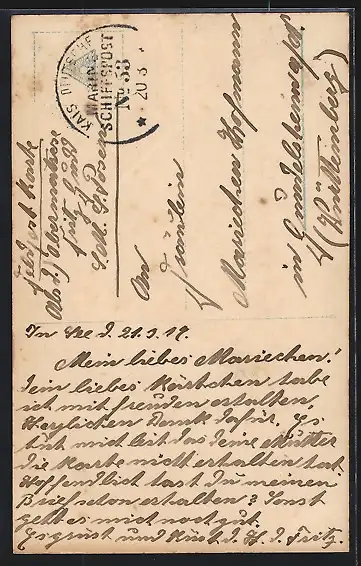 KAIS. DEUTSCHE
MARINE
SCHIFFSPOST
No 53
20 3
Feldpostkarte
Abs. d.
Fritz
An
Fräulein
Mariechen Hofmann
in
(Württemberg)
In See d. 21.3.17.
Mein liebes Mariechen!
Dein liebes Kärtchen habe
ich mit freuden erhalten,
Herzlichen Dank dafür. Es
tut mich leit das deine Mutter
die Karte nicht erhalten hat.
Hoffendlich hast du meinen
Brief schon erhalten? Sonst
geht es mich noch gut.
Es grüst und Küst d. H. d. Fritz.